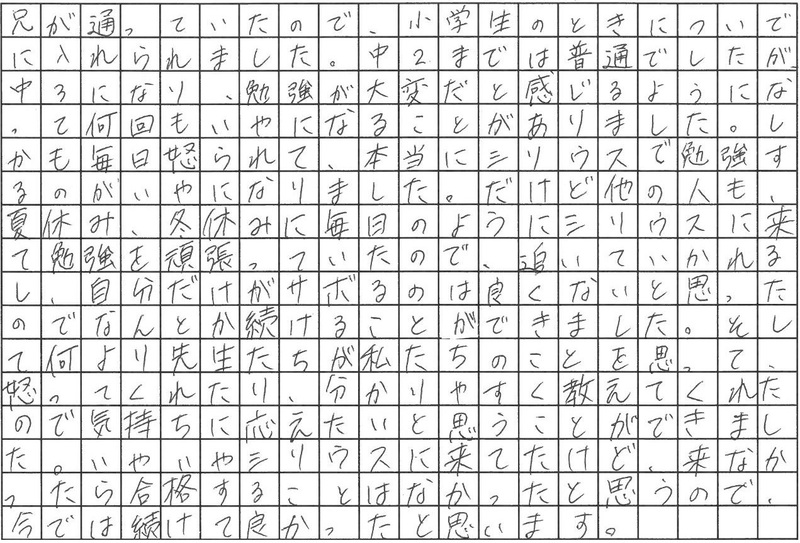 兄が通っていたので、小学生のときについで
に入れられました。中2までは普通でしたが、
中3になり、勉強が大変だと感じるようにな
って何回もいやになることがありました。し
かも毎日怒られて、本当にシリウスで勉強す
るのがいやになりました。だけど他の人も、
夏休み、冬休みに毎日のようにシリウスに来
て勉強を頑張っていたので、追いていかれる
し、自分だけがサボるのは良くないと思った
のでなんとか続けることができました。そし
て何より先生たちが私たちのことを思って、
怒ってくれたり、分かりやすく教えてくれた
ので気持ちに応えたいと思うことができまし
た。いやいやシリウスに来てたけど、来なか
ったら合格することはなかったと思うので、
今では続けて良かったと思います。